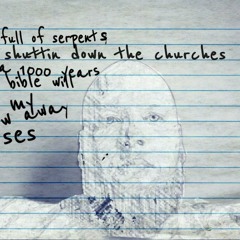 full of serpents
shuttin down the churches
1000 years
bible will
my
away
ses